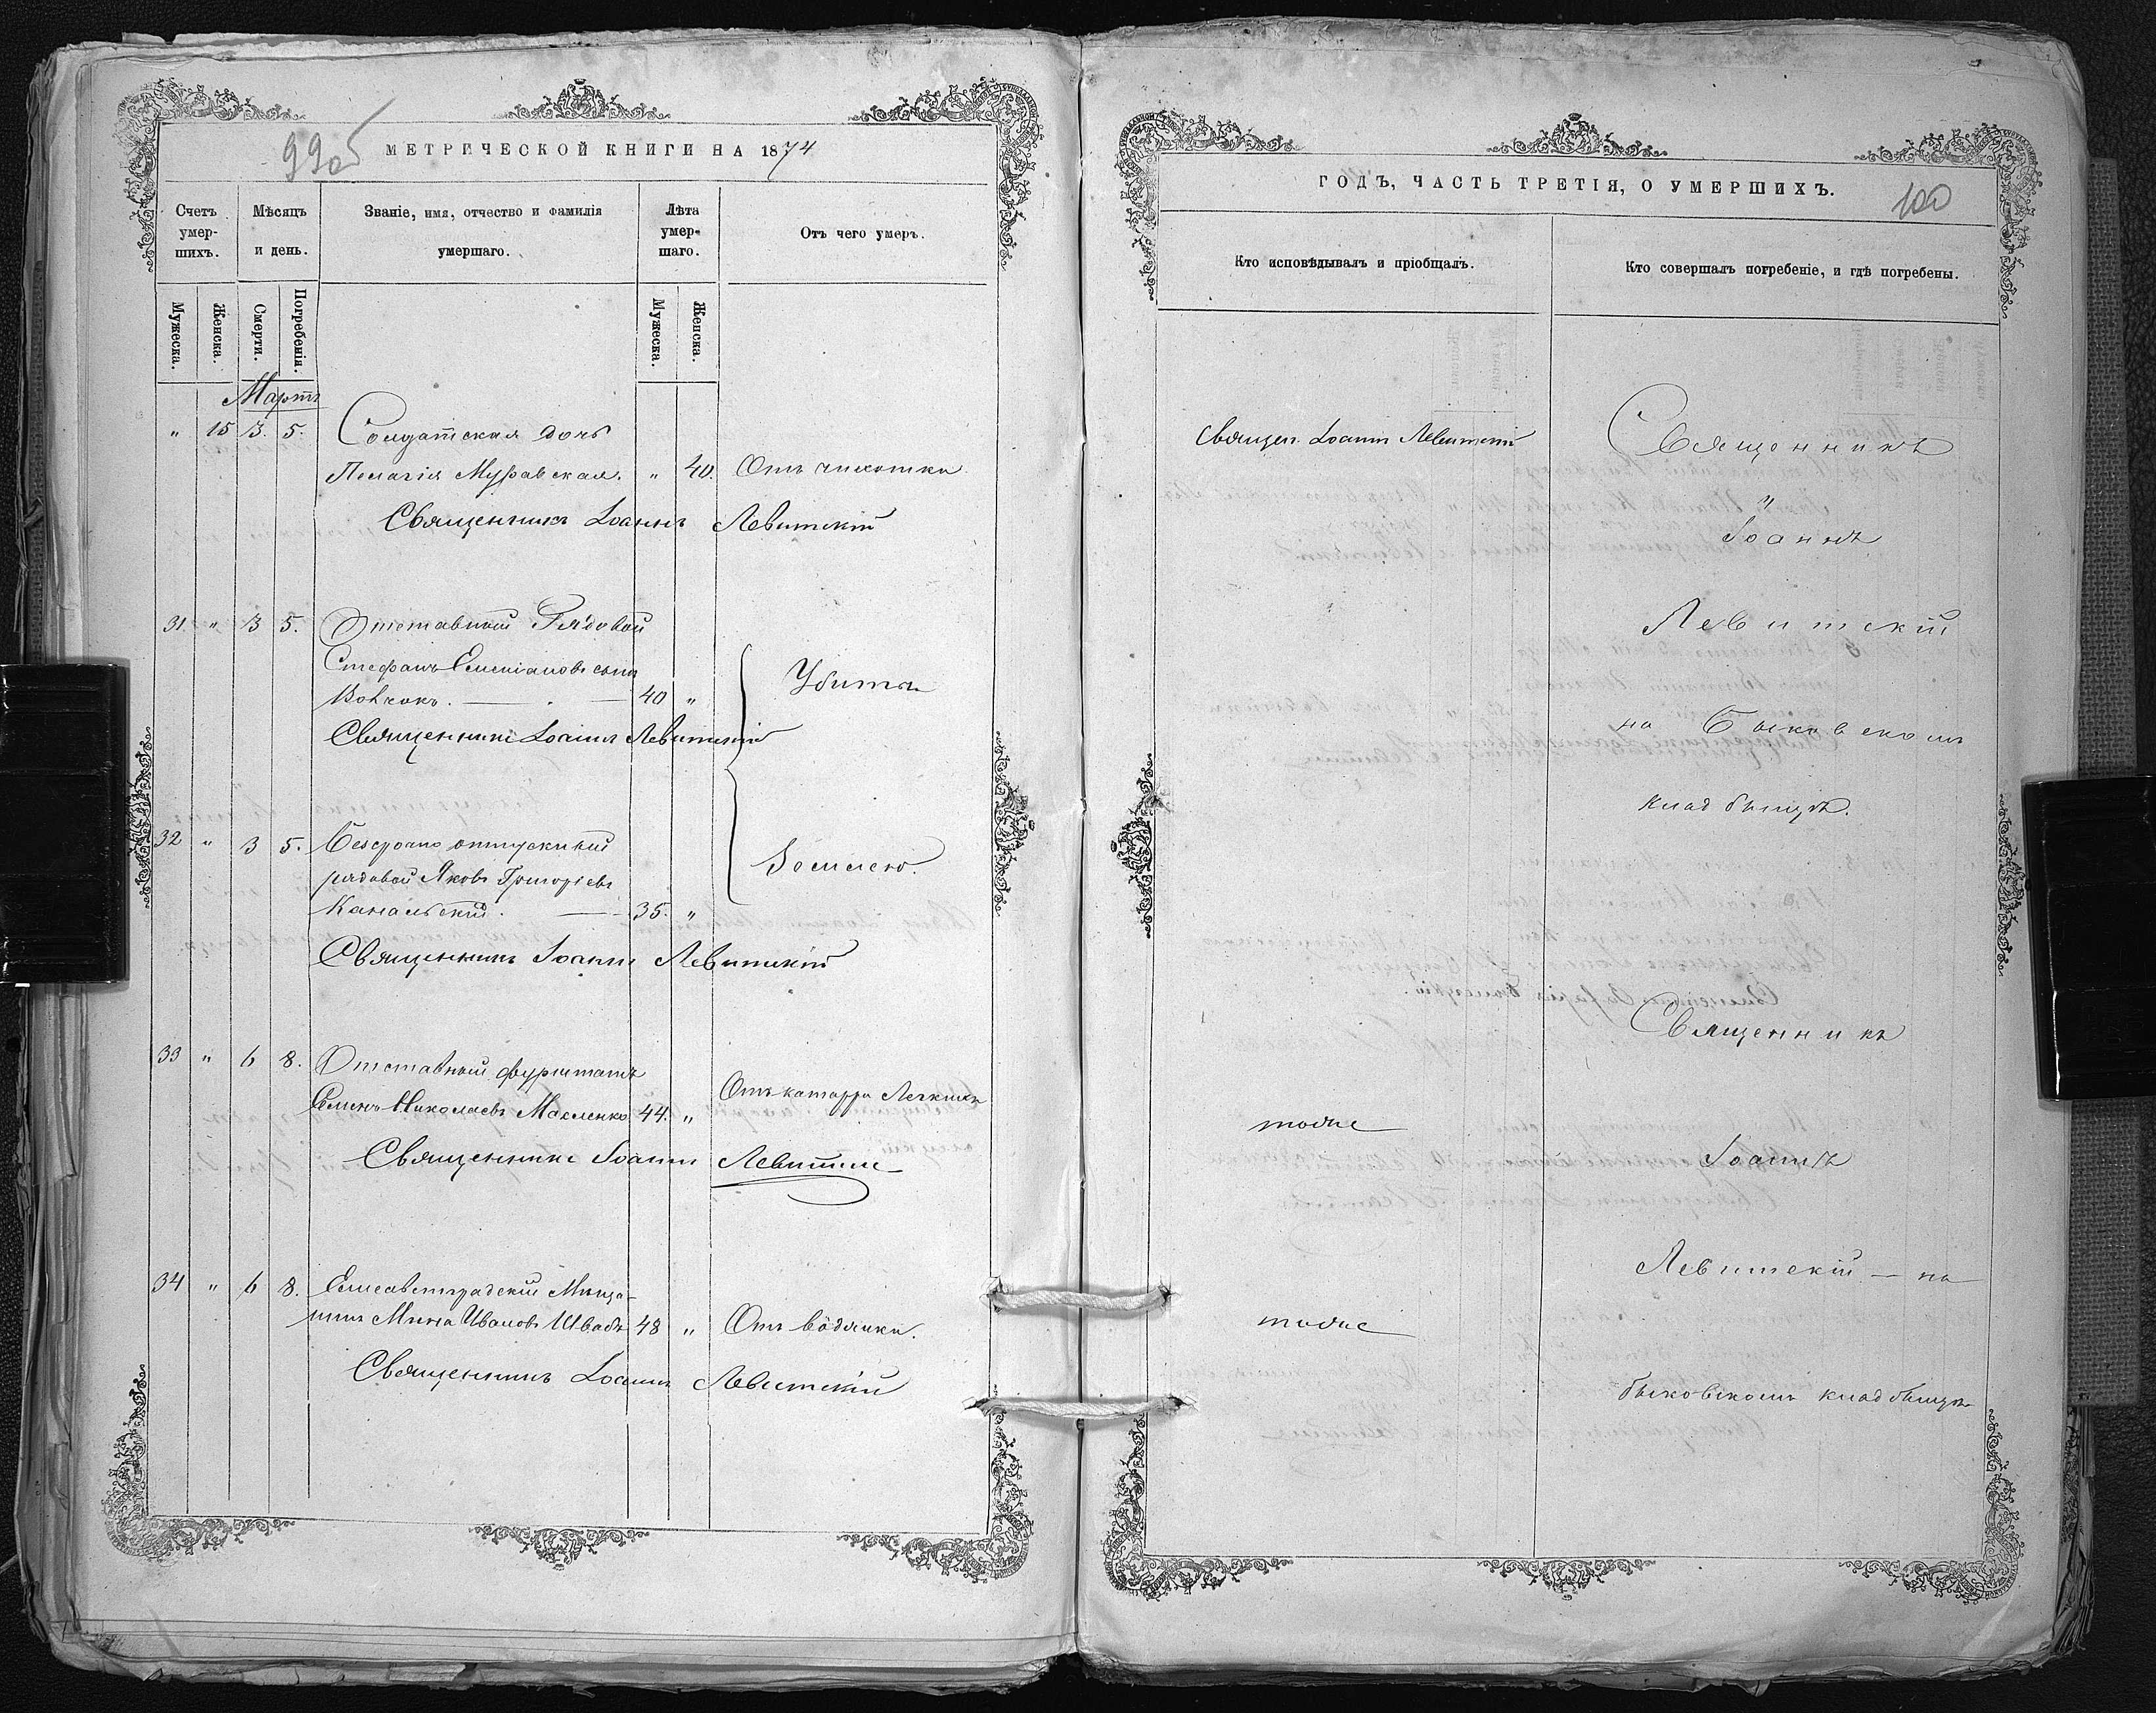 99об
МЕТРИЧЕСКОЙ КНИГИ НА 1874
Счетъ умер-шихъ.
Мѣсяцъ и день.
Званіе, имя, отчество и фамилія умершаго.
Лѣта умер-шаго.
Отъ чего умеръ.
Мужеска.
Женска.
Смерти.
Погребенія.
Мужеска.
Женска.
Мартъ
" 15 3. 5. Солдатская дочь
Пелагія Муравская. " 40. Отъ чихотки
Священникъ Іоаннъ Левитскій
31. " 3 5. Отставной Рядовой
Стефанъ сынъ
Вовчокъ. — 40 " Убиты
Священникъ Іоаннъ Левитскій
32 " 3 5. Безсрочно отпускной
рядовой Яковъ Григоріевъ
Канальскій. — 35. " Землею.
Священникъ Іоаннъ Левитскій
33 " 6 8. Отставной фурштатъ
Семенъ Николаевъ Масленко 44. " Отъ катарра Легкихъ
Священникъ Іоаннъ Левитскій
34 " 6 8. Елисаветградскій Мѣща-
нинъ Мина Ивановъ Швабъ 48 " Отъ водянки.
Священникъ Іоаннъ Левитскій
ГОДЪ, ЧАСТЬ ТРЕТІЯ, О УМЕРШИХЪ.
100
Кто исповѣдывалъ и пріобщалъ.
Кто совершалъ погребеніе, и гдѣ погребены.
Священ. Іоаннъ Левитскій
Священникъ
Іоаннъ
Левитскій
на Быковскомъ
кладбищѣ.
Священникъ
тоже
Іоаннъ
Левитскій — на
тоже
быковскомъ кладбищѣ